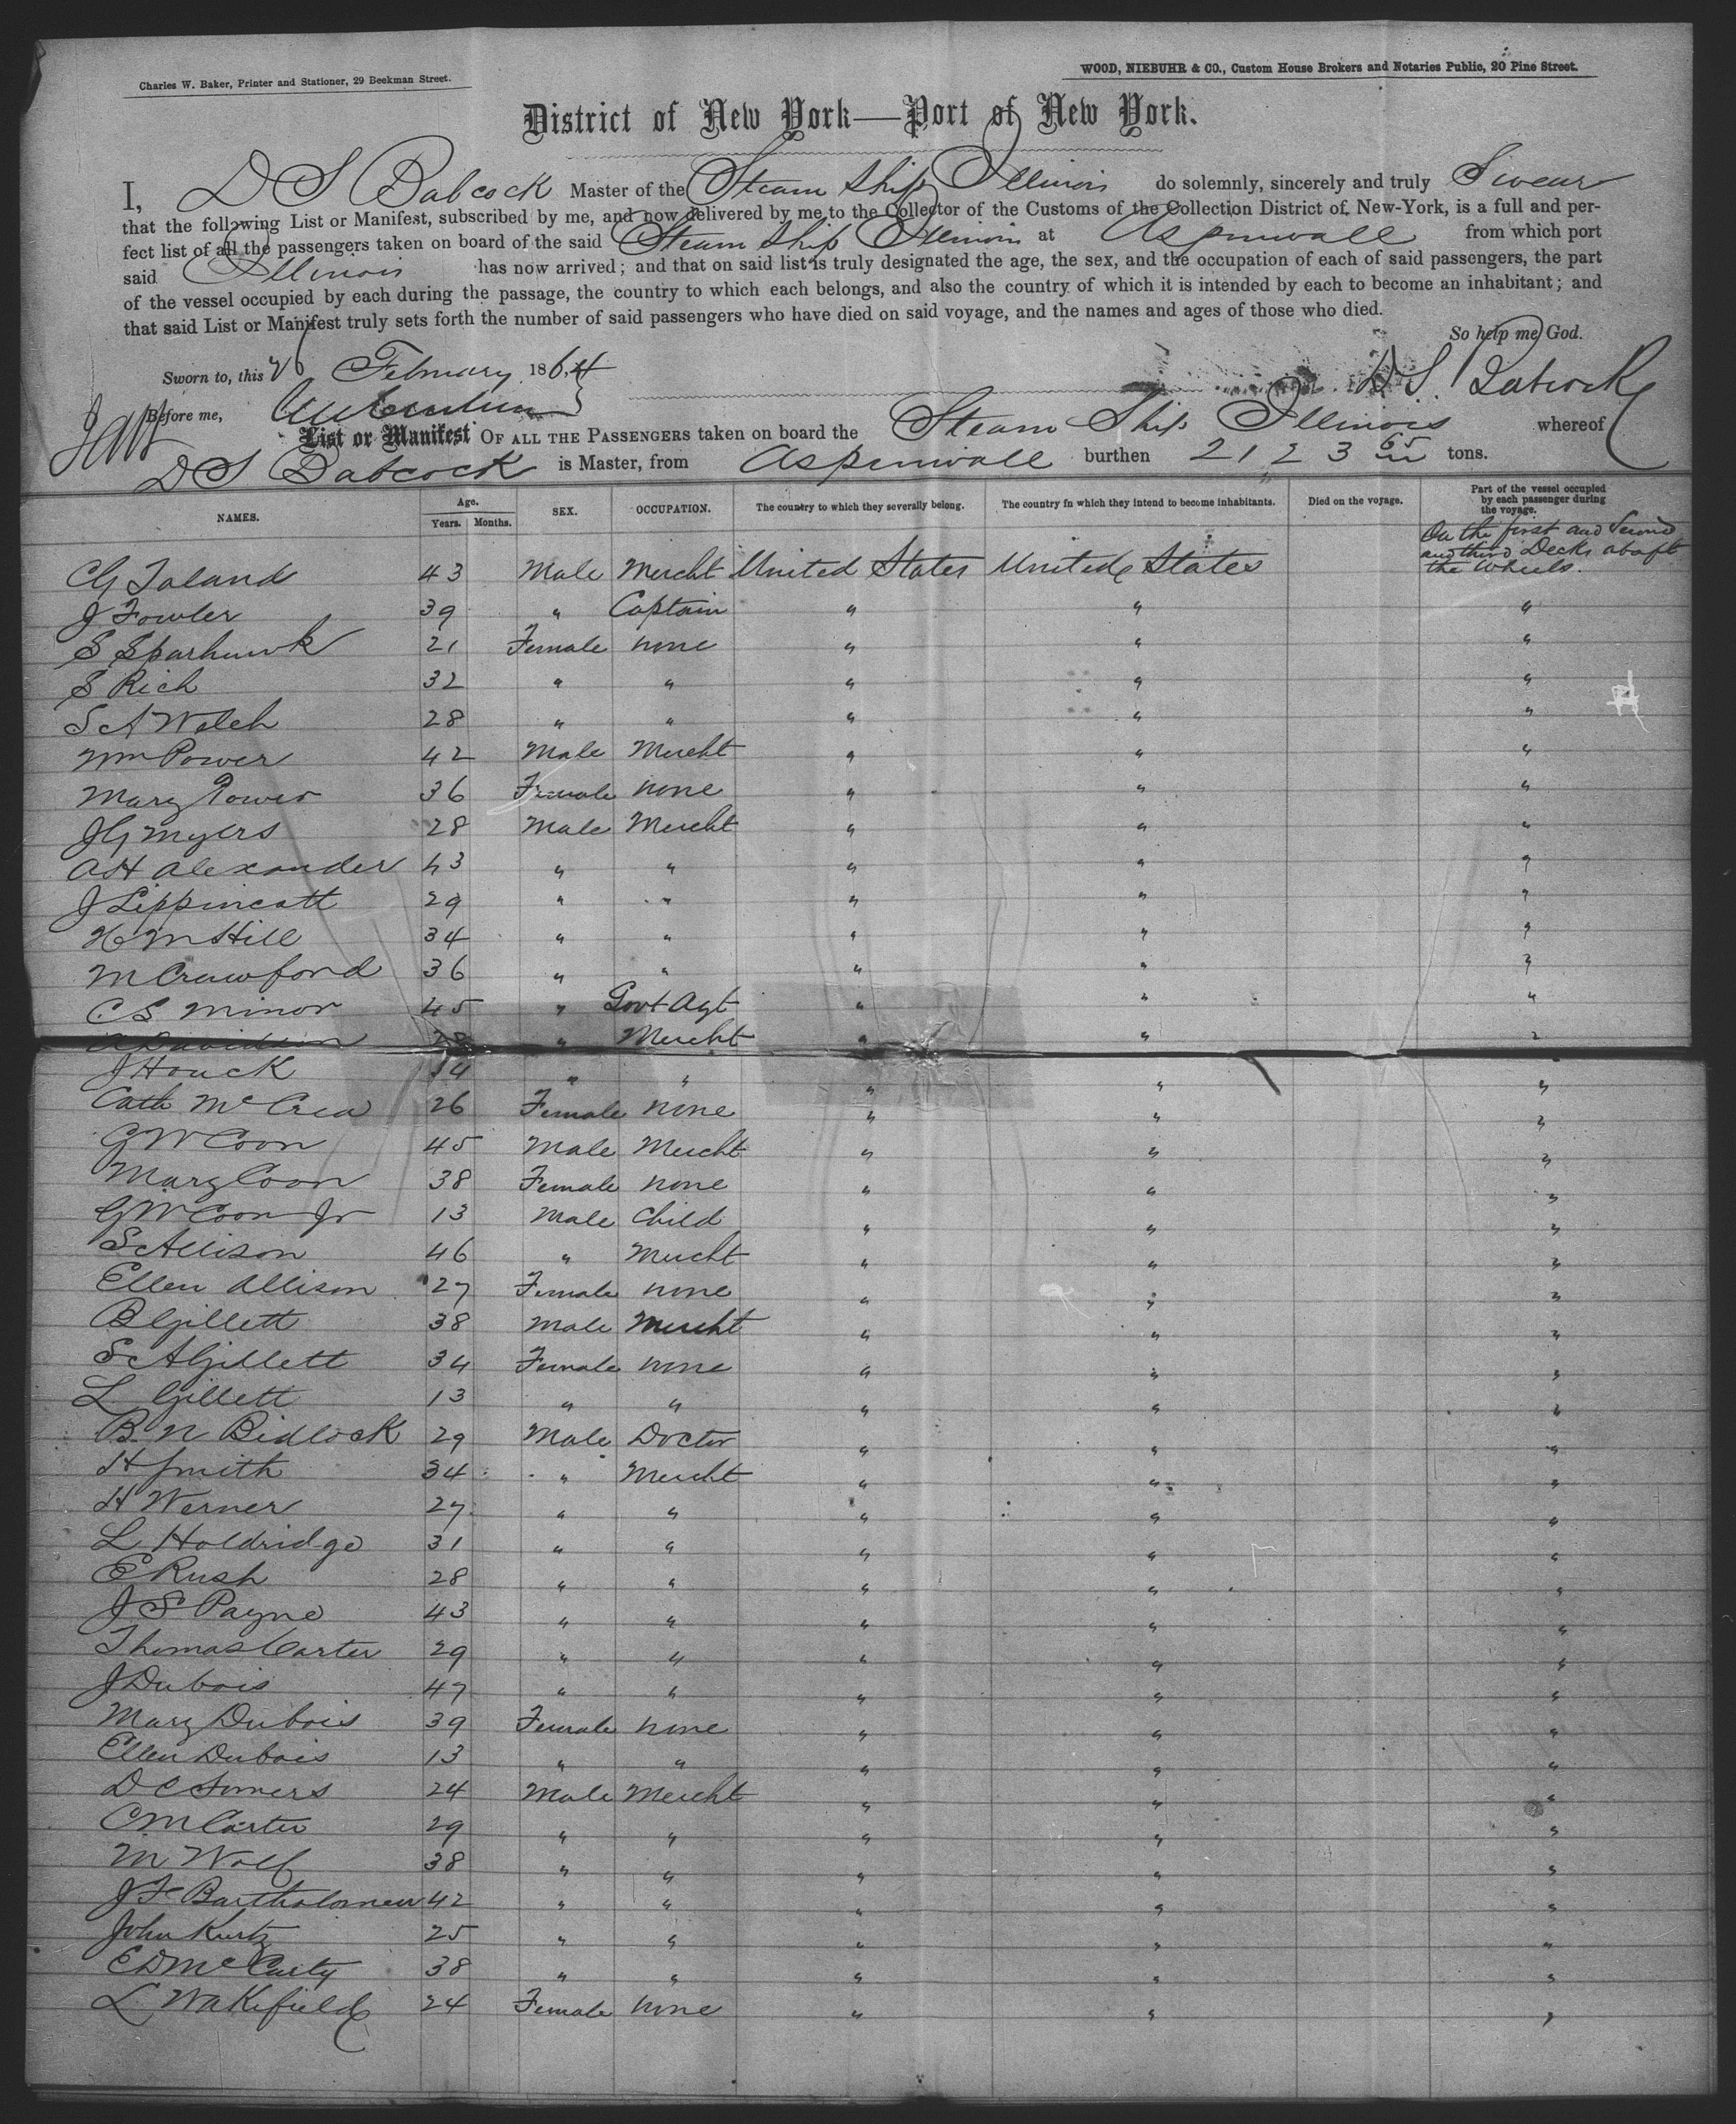 Charles W. Baker, Printer and Stationer, 29 Beekman Street.
WOOD, NIEBUHR & CO., Custom House Brokers and Notaries Public, 20 Pine Street.
District of New York—Port of New York.
I, D S Babcock Master of the Steam Ship Illinois do solemnly, sincerely and truly Swear
that the following List or Manifest, subscribed by me, and now delivered by me to the Collector of the Customs of the Collection District of New-York, is a full and per-
fect list of all the passengers taken on board of the said Steam Ship Illinois at Aspinwall from which port
said Illinois has now arrived; and that on said list is truly designated the age, the sex, and the occupation of each of said passengers, the part
of the vessel occupied by each during the passage, the country to which each belongs, and also the country of which it is intended by each to become an inhabitant; and
that said List or Manifest truly sets forth the number of said passengers who have died on said voyage, and the names and ages of those who died.
So help me God.
Sworn to, this 26 February 1864 D.S. Babcock
Before me,
List or Manifest OF ALL THE PASSENGERS taken on board the Steam Ship Illinois whereof
D S Babcock is Master, from Aspinwall burthen 2123 65 tons.
NAMES. Age. Years. Months. SEX. OCCUPATION. The country to which they severally belong. The country in which they intend to become inhabitants. Died on the voyage. Part of the vessel occupied by each passenger during the voyage.
On the first and Second
and third Decks abaft
the Wheels.
CG Toland 43 Male Mercht United States United States
J Fowler 39 " Captain " " "
S Sparhawk 21 Female none " " "
S Rich 32 " " " " "
S A Welch 28 " " " " "
Wm Power 42 Male Mercht " " "
Mary Power 36 Female none " " "
JG Myers 28 Male Mercht " " "
AH Alexander 43 " " " " "
J Lippincott 29 " " " " "
H M Hill 34 " " " " "
M Crawford 36 " " " " "
C S Minor 45 " Govt Agt " " "
A Davidson 28 " Mercht " " "
J Houck 34 " " " " "
Cath McCrea 26 Female none " " "
G W Coon 45 Male Mercht " " "
Mary Coon 38 Female none " " "
G W Coon Jr 13 Male Child " " "
S Allison 46 " Mercht " " "
Ellen Allison 27 Female none " " "
B Gillett 38 Male Mercht " " "
S A Gillett 34 Female none " " "
L Gillett 13 " " " " "
B. N Bidlock 29 Male Doctor " " "
H Smith 34 " Mercht " " "
H Werner 27 " " " " "
L Holdridge 31 " " " " "
E Rush 28 " " " " "
J S Payne 43 " " " " "
Thomas Carter 29 " " " " "
J Dubois 47 " " " " "
Mary Dubois 39 Female none " " "
Ellen Dubois 13 " " " " "
D C Somers 24 Male Mercht " " "
C M Carter 29 " " " " "
M Wolf 38 " " " " "
J F Bartholomew 42 " " " " "
John Kurtz 25 " " " " "
E D McCarty 38 " " " " "
L Wakefield 24 Female none " " "